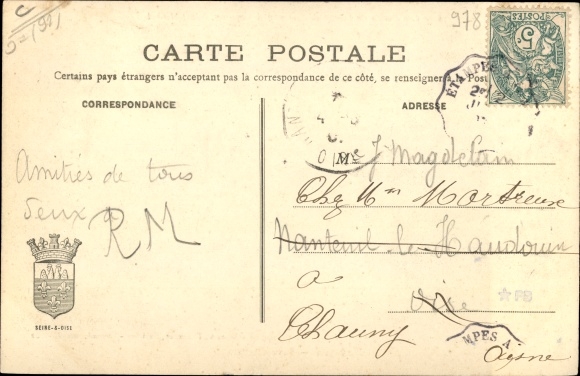 978
CARTE POSTALE
Certains pays étrangers n'acceptant pas la correspondance de ce côté, se renseigner à la Poste
CORRESPONDANCE
ADRESSE
POSTES
5c
ETAMPES
M J Magdelain
Chez Mm Mortreux
Nanteuil le Haudouin
Oise
à
Chauny
Aysne
Amitiés de tous
deux
RM
SEINE-&-OISE
MPES A
PB